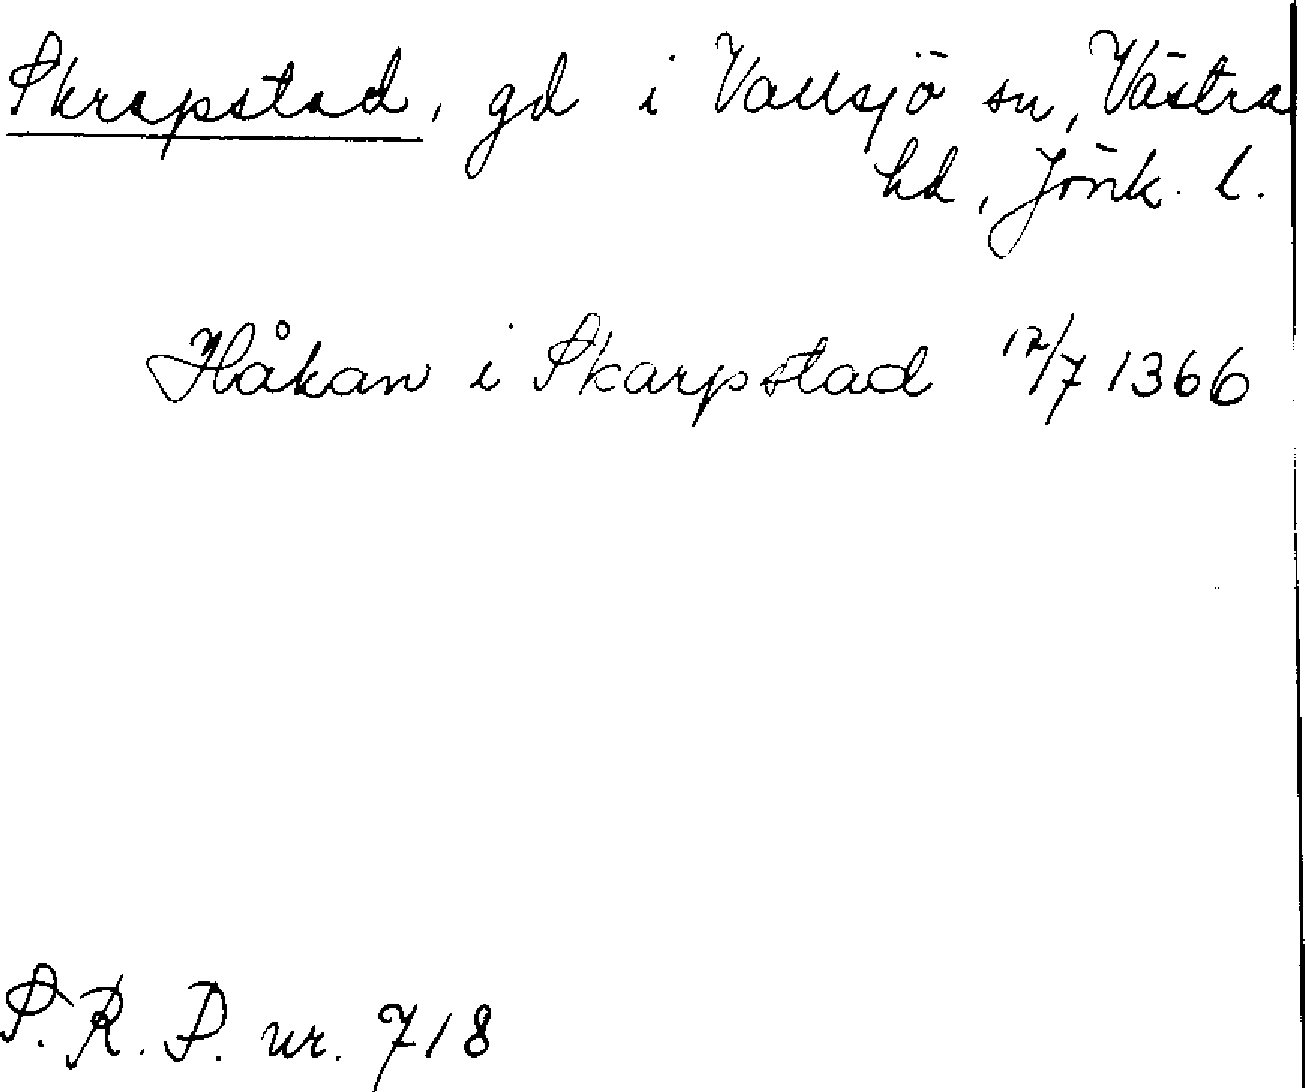 Skrapstad, gd i Vallsjö sn, Västra
hd, Jönk. l.
Håkan i Skarpstad 12/7 1366
S. R. P. nr. 718